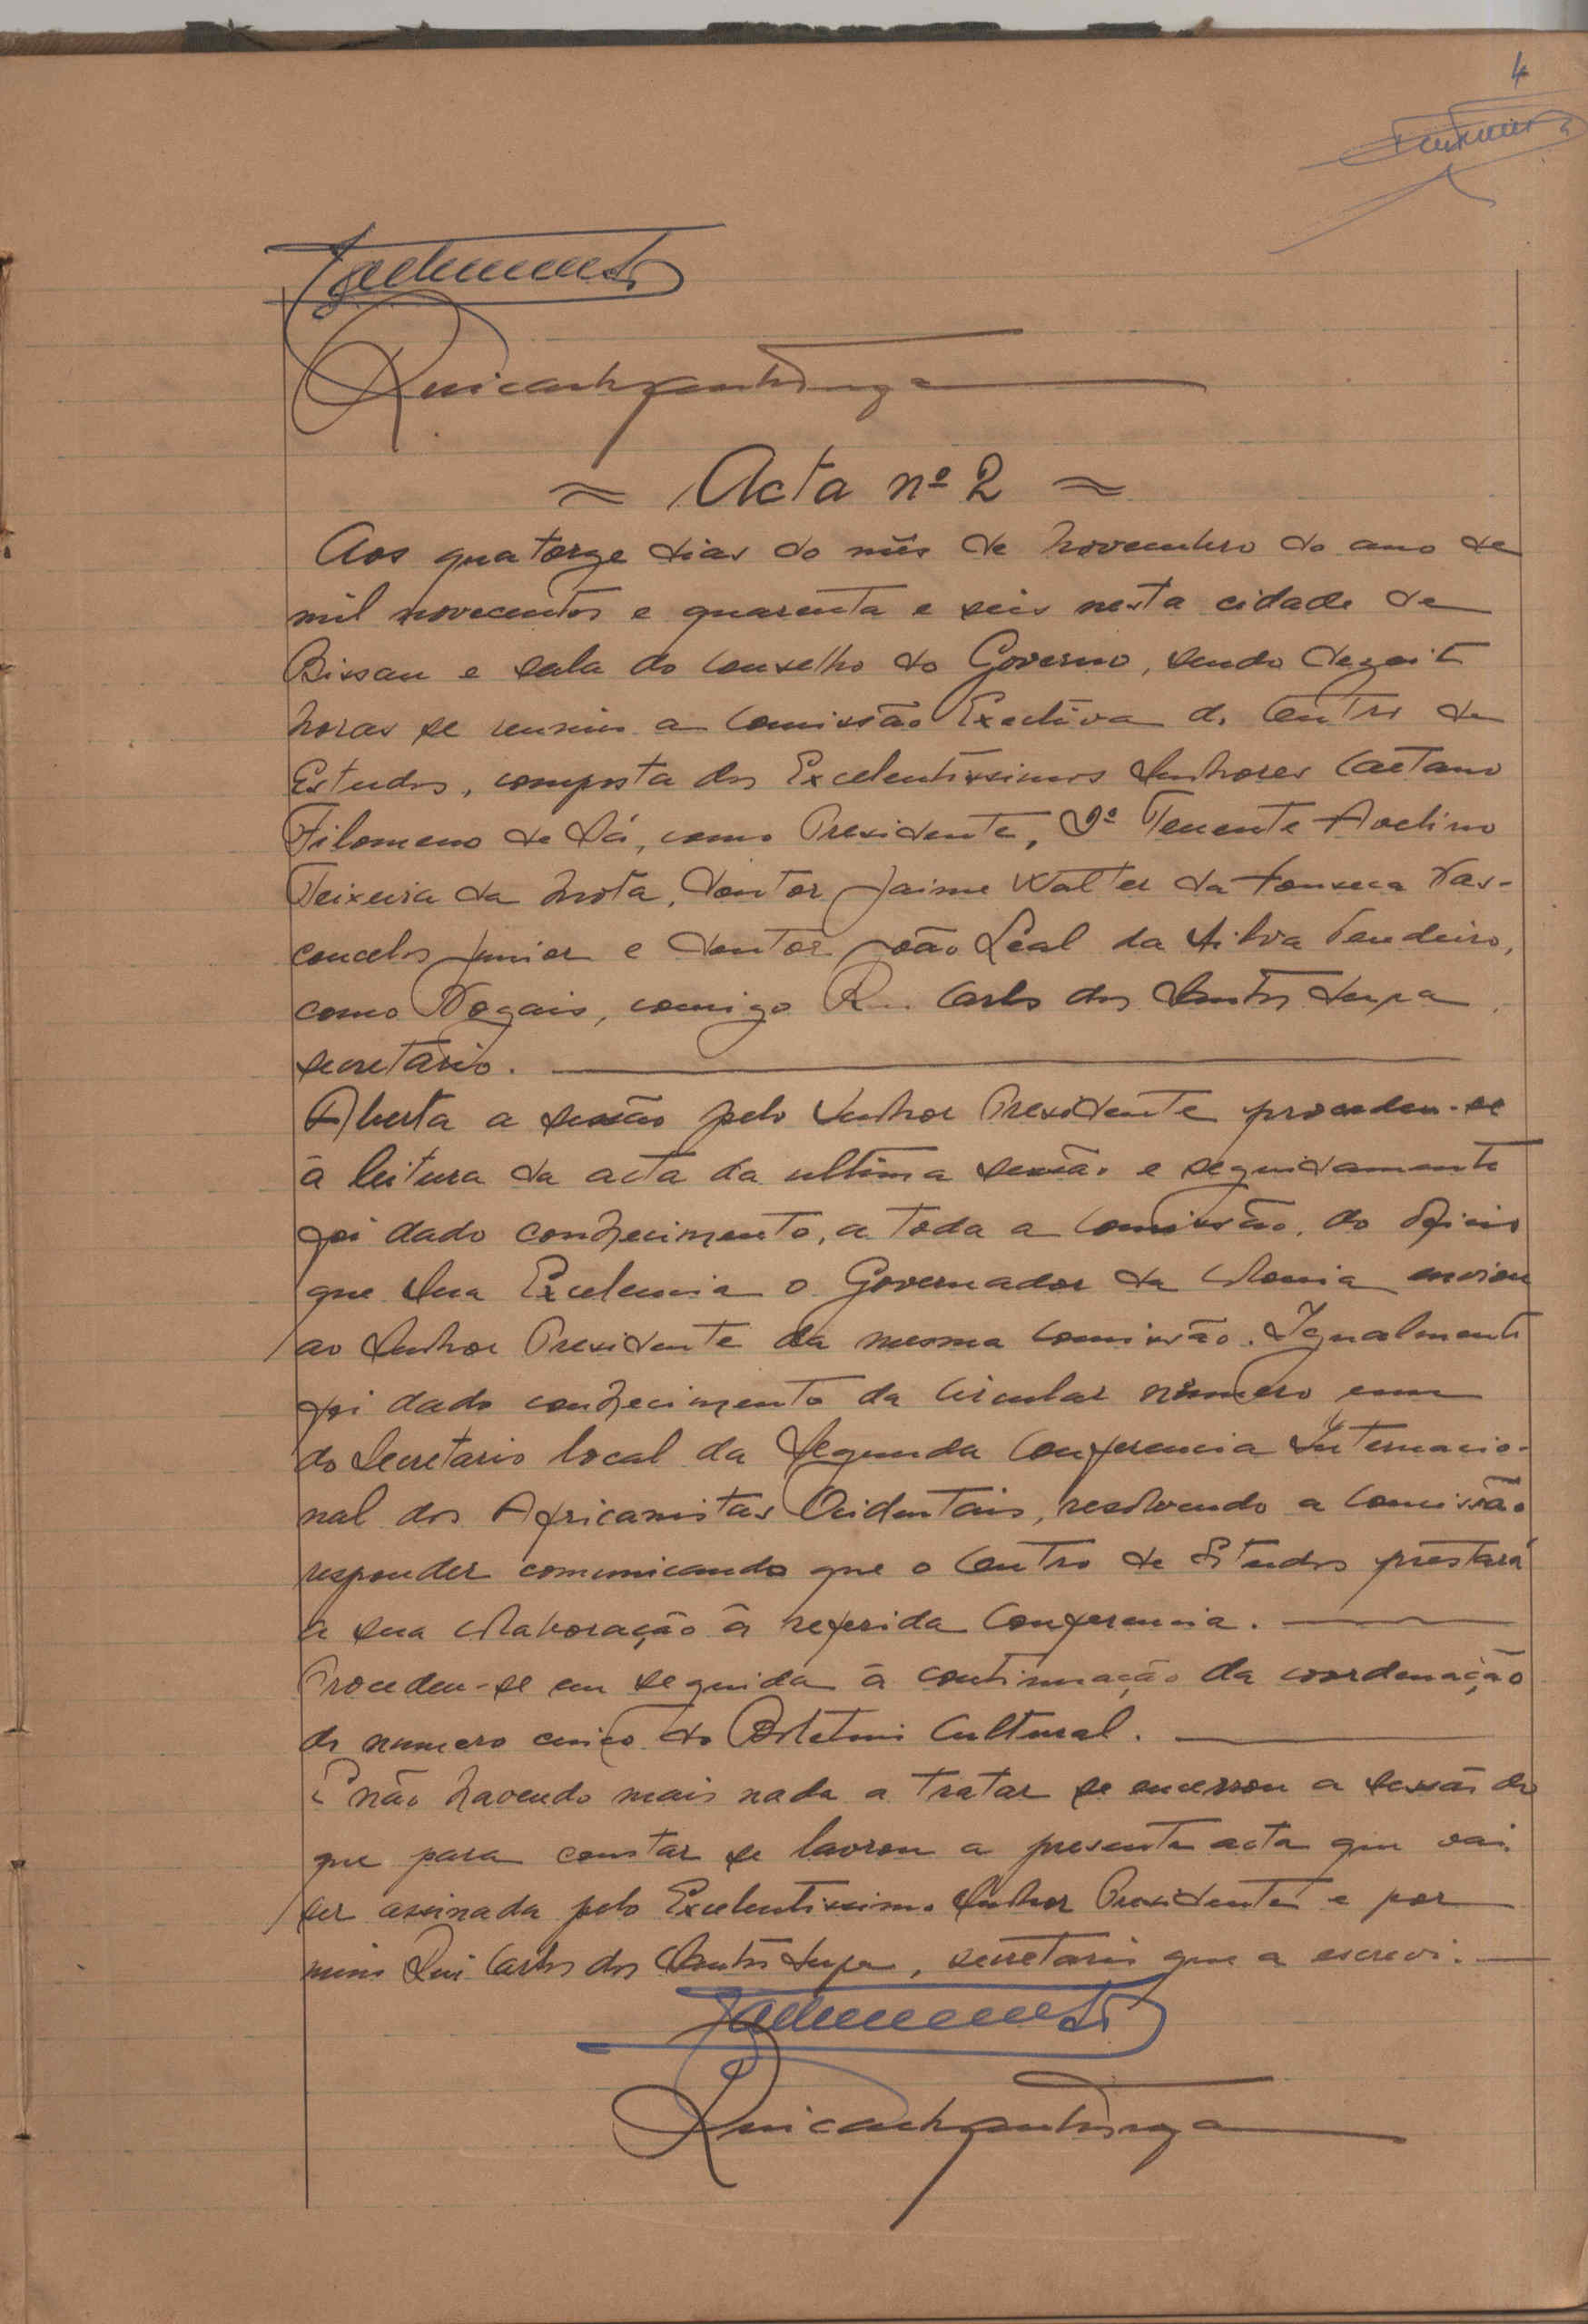 4
≈ Acta nº 2 ≈
Aos quatorze dias do mês de Novembro do ano de
mil novecentos e quarenta e seis nesta cidade de
Bissau e sala do Conselho do Governo, sendo dezoit
horas se reuniu a Comissão Exectiva do Centro de
Estudos, composta dos Excelentissimos Senhores Caetano
Filomeno de Sá, como Presidente, 2º Tenente Avelino
Teixeira da Mota, Doutor Jaime Walter da Fonseca Vas-
concelos Junior e Doutor João Leal da Silva Tendeiro,
como Vogais, comigo Rui Carlos dos Santos Serpa
secretário.
Aberta a sessão pelo Senhor Presidente procedeu-se
à leitura da acta da ultima sessão e seguidamente
foi dado conhecimento, a toda a Comissão, do oficio
que Sua Excelencia o Governador da Colonia enviou
ao Senhor Presidente da mesma Comissão. Igualmente
foi dado conhecimento da Circular número um
do Secretario local da Segunda Conferencia Internacio-
nal dos Africanistas Ocidentais, resolvendo a Comissão
responder comunicando que o Centro de Estudos prestará
a sua colaboração à referida Conferencia.
Procedeu-se em seguida à continuação da coordenação
do numero cinco do Boletim Cultural.
E não havendo mais nada a tratar se encerrou a sessão do
que para constar se lavrou a presente acta que vai
ser assinada pelo Excelentissimo Senhor Presidente e por
mim Rui Carlos dos Santos Serpa, secretario que a escrevi.